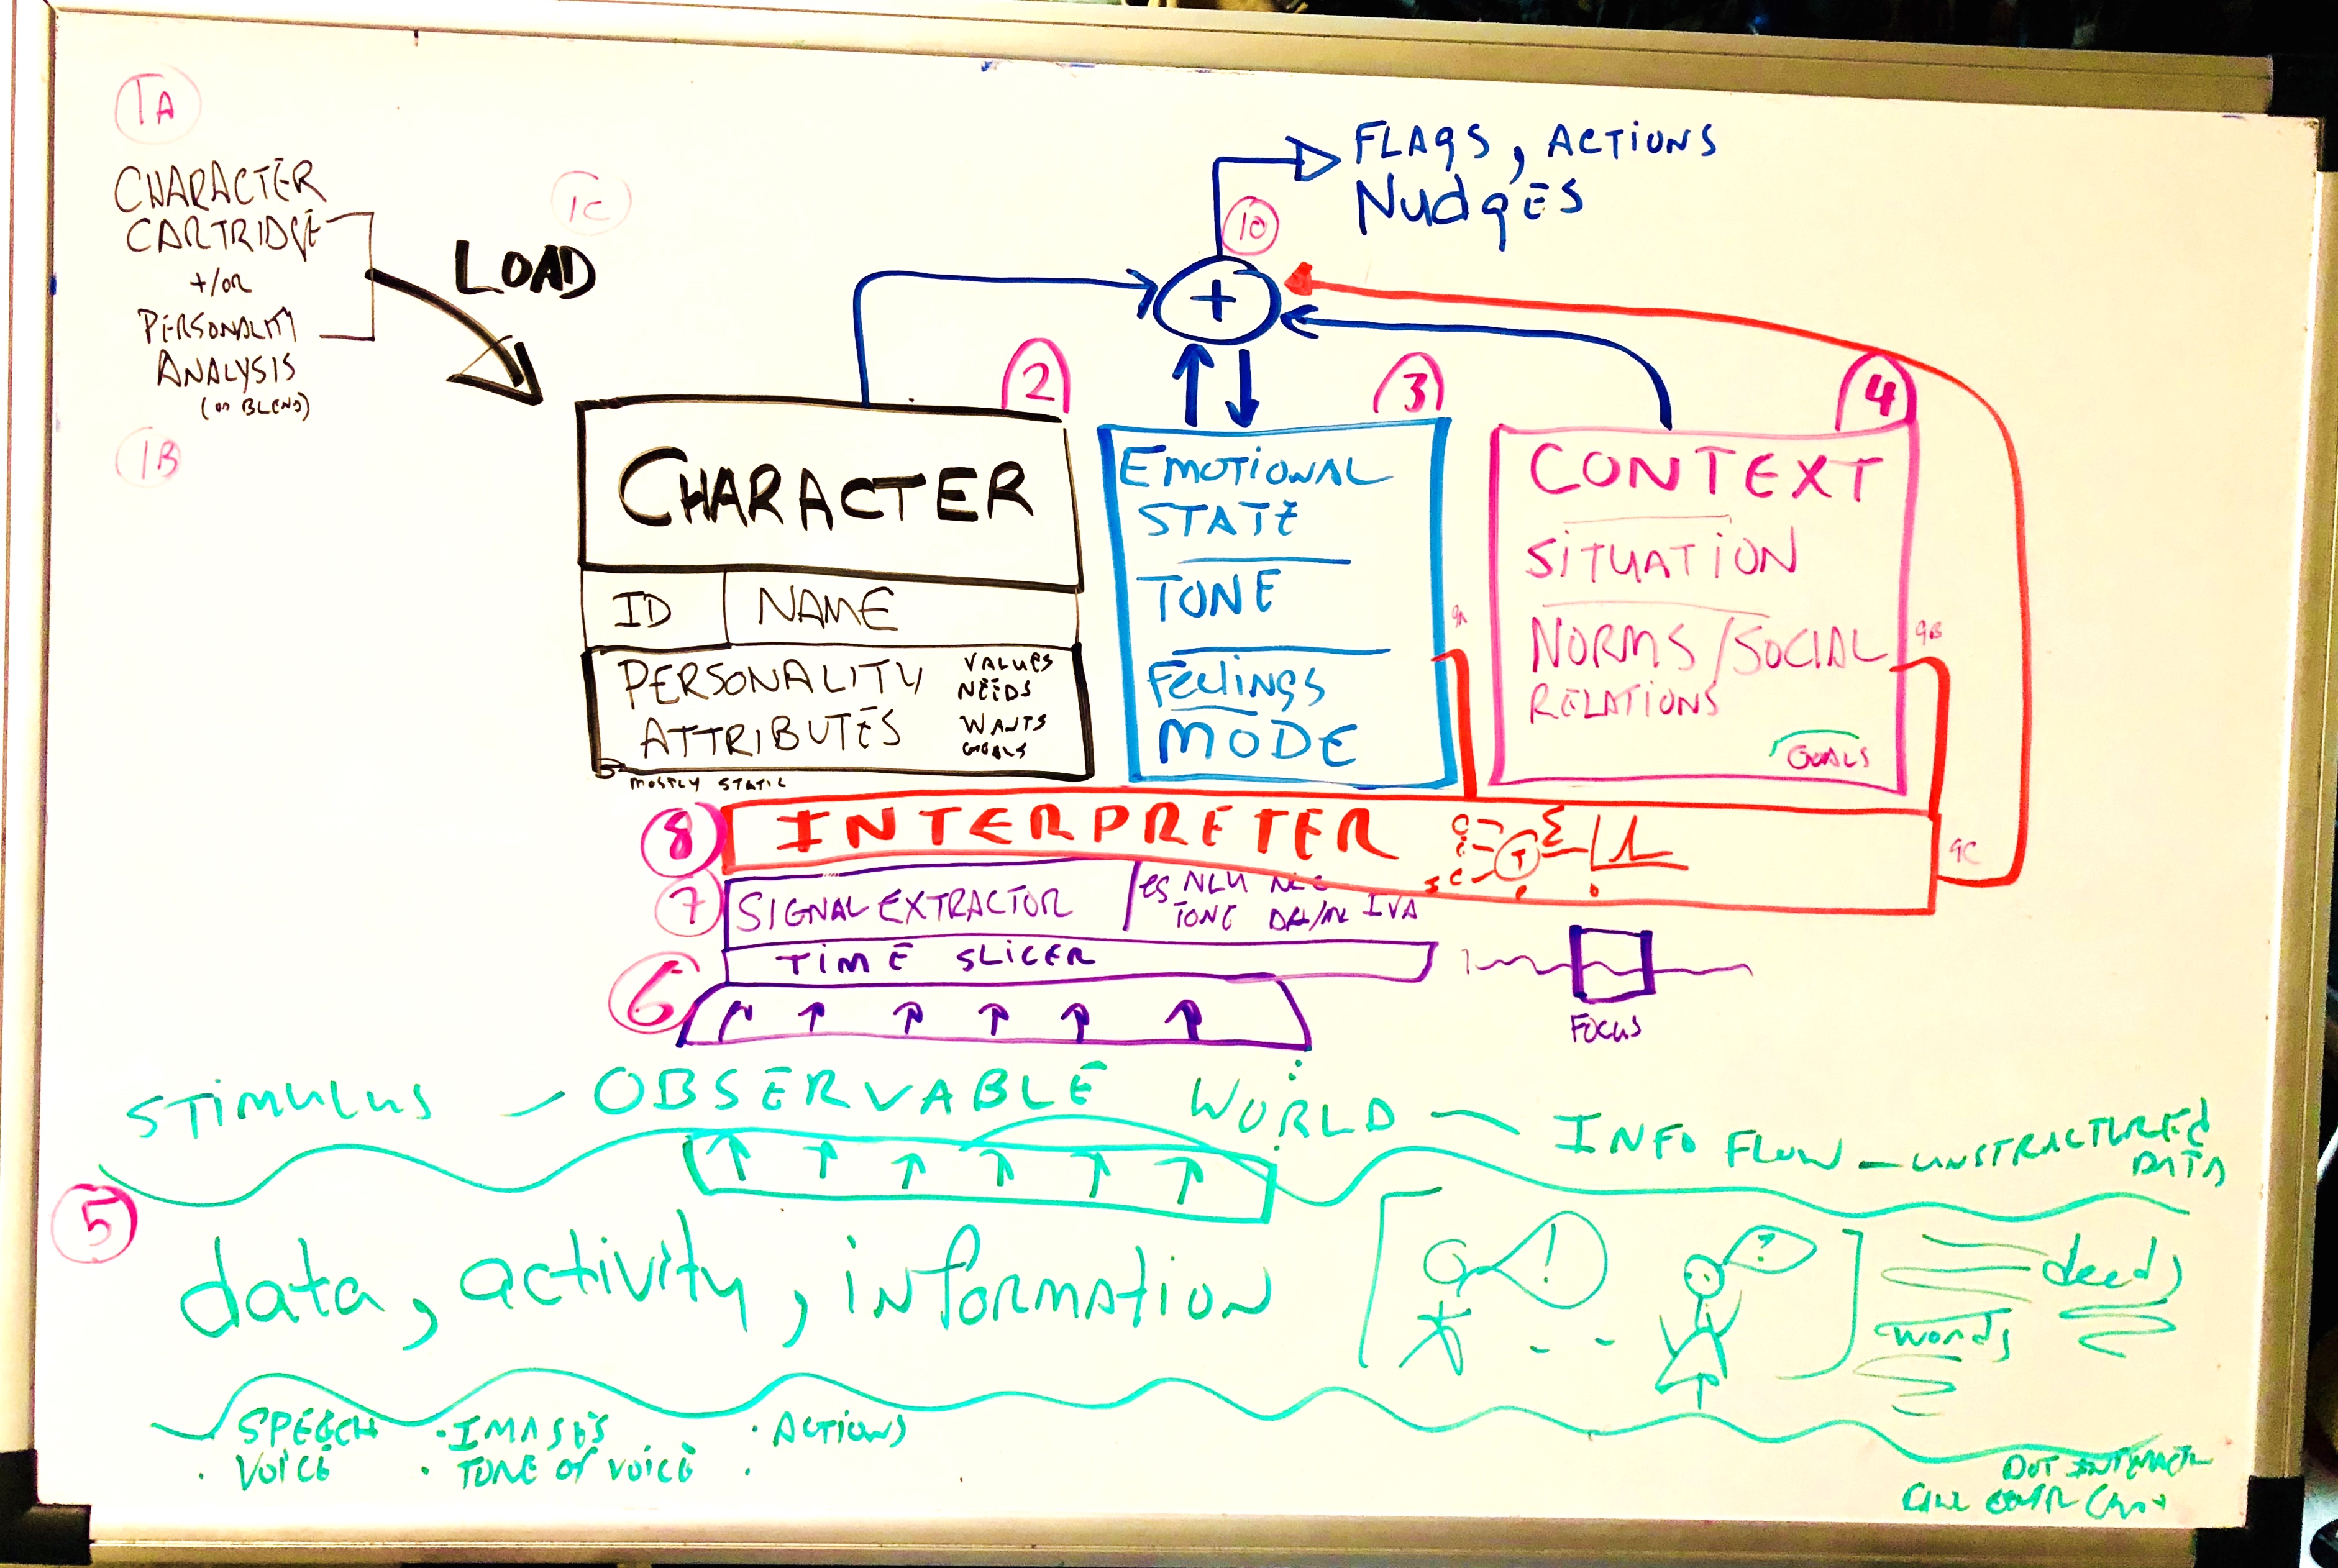 1A
CHARACTER
CARTRIDGE
+/OR
PERSONALITY
ANALYSIS
(OR BLEND)
1B
1C
LOAD
FLAGS, ACTIONS
NUDGES
10
+
2
CHARACTER
ID NAME
PERSONALITY
ATTRIBUTES
VALUES
NEEDS
WANTS
GOALS
MOSTLY STATIC
3
EMOTIONAL
STATE
TONE
FEELINGS
MODE
9A
4
CONTEXT
SITUATION
NORMS/SOCIAL
RELATIONS
GOALS
9B
8
INTERPRETER
Σ
9C
7
SIGNAL EXTRACTOR
NLU
TONE IVA
6
TIME SLICER
FOCUS
STIMULUS - OBSERVABLE WORLD - INFO FLOW - UNSTRUCTURED
DATA
5
data, activity, INFORMATION
!
?
deeds
words
SPEECH
· VOICE
· IMAGES
· TONE OF VOICE
· ACTIONS
·